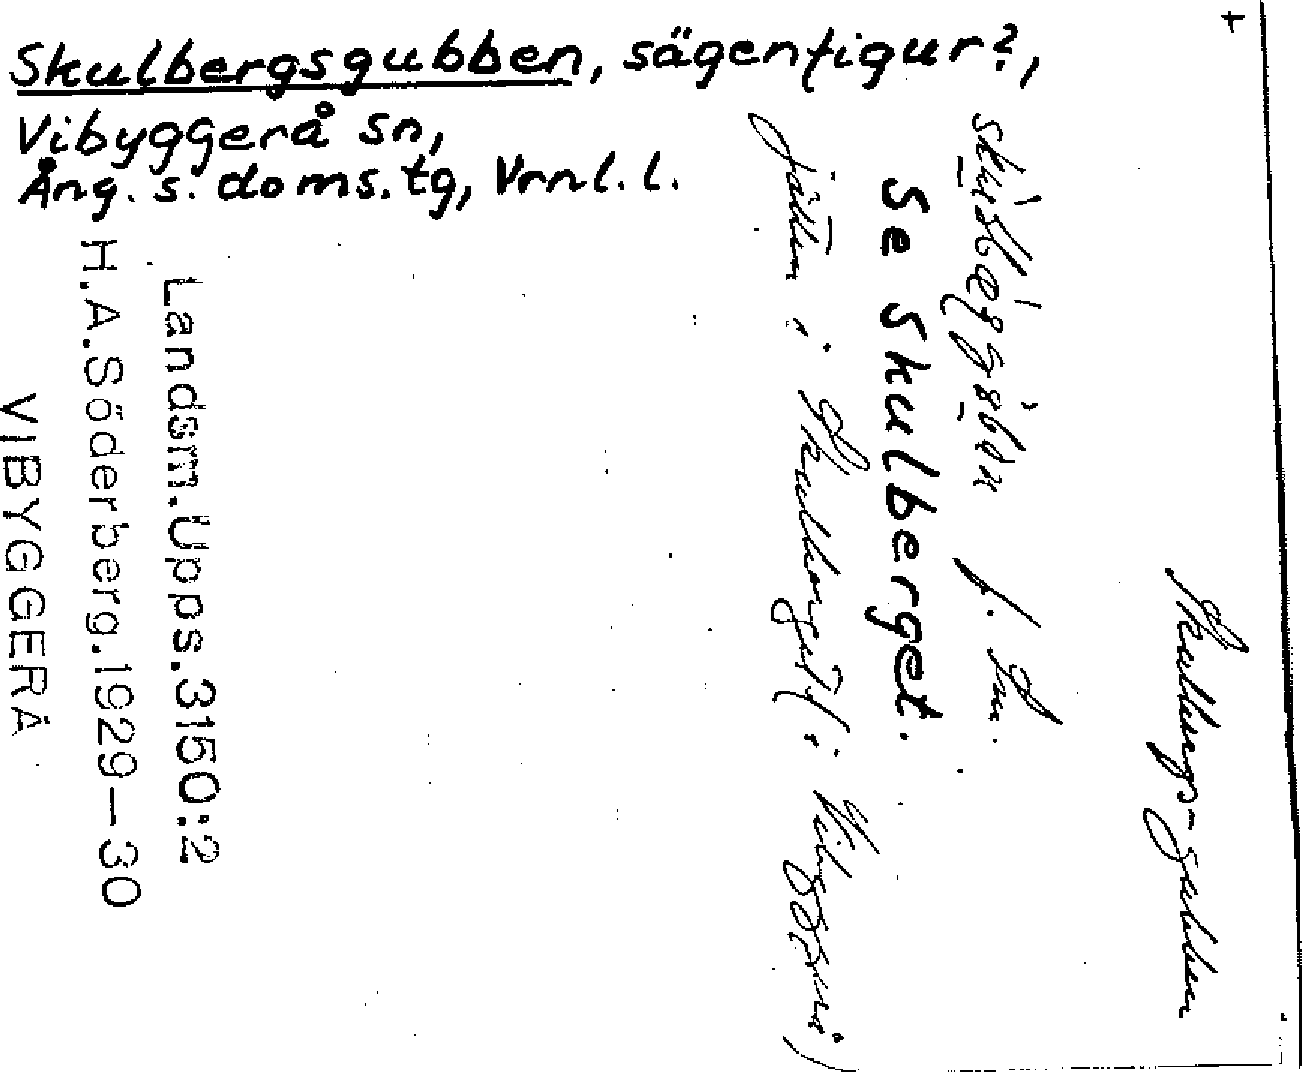 Skulbergsgubben, sägenfigur?,
Vibyggerå sn,
Ång. s. doms.tg, Vrnl. l.
Skullbergs-gubben
Se Skulberget.
jätten i Skulberget (i Vibyggerå)
Landsm.Upps.3150:2
H.A.Söderberg.1929-30
VIBYGGERÅ